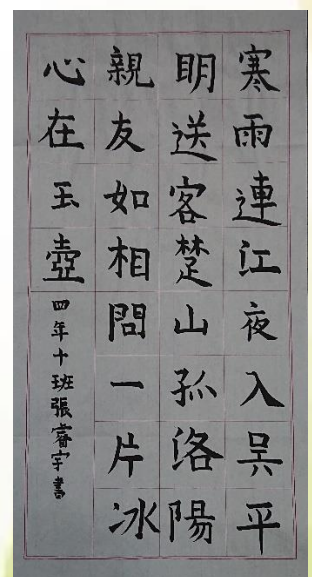 寒雨連江夜入吳平
明送客楚山孤洛陽
親友如相問一片冰
心在玉壺
四年十班張睿宇書